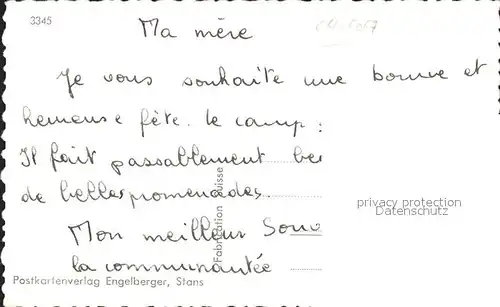 3345
Ma mère
Je vous souhaite une bonne et
heureuse fête. le camp :
Il fait passablement
de belles promenades.
Mon meilleur Souv
la communautée
Fabrication Suisse
privacy protection
Datenschutz
Postkartenverlag Engelberger, Stans